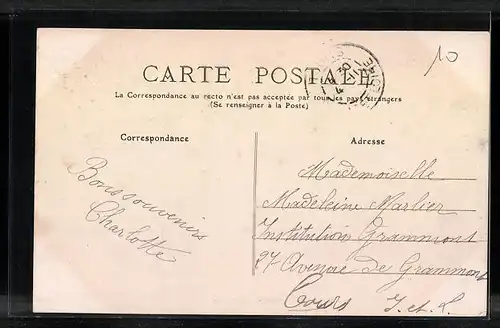 10
CARTE POSTALE
La Correspondance au recto n'est pas acceptée par tous les pays étrangers
(Se renseigner à la Poste)
Correspondance
Adresse
Bons souvenirs
Charlotte
Mademoiselle
Madeleine Marlier
Institution Grammont
27 Avenue de Grammont
Tours I. et L.